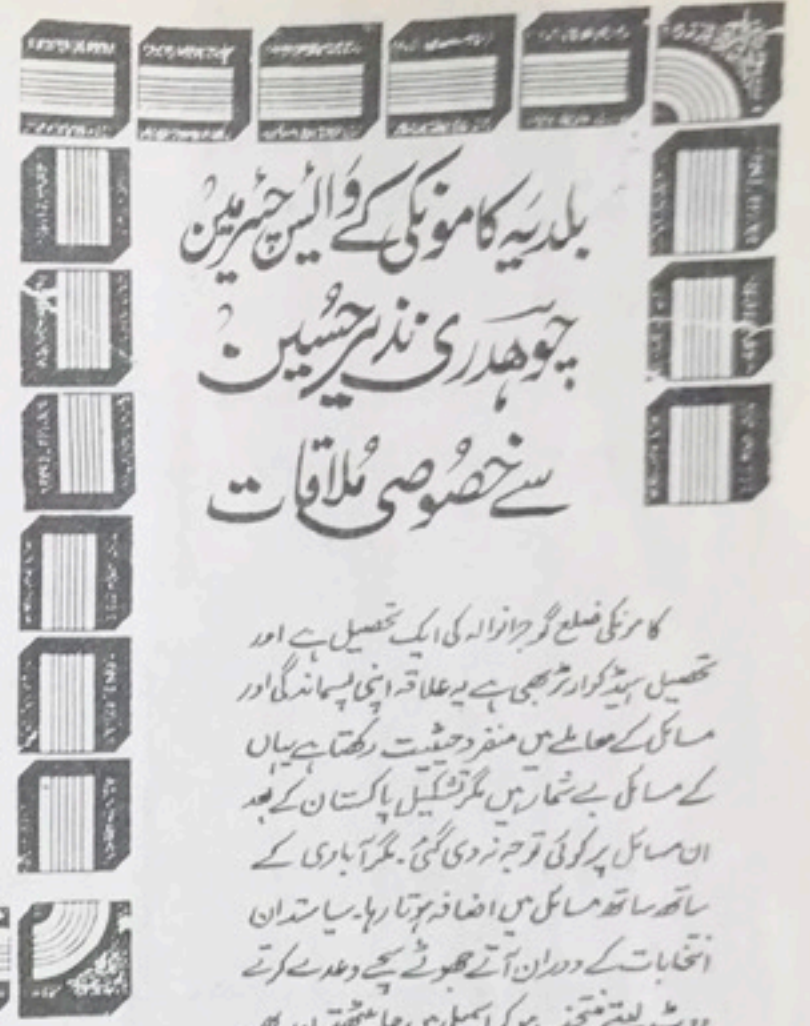 بلدیہ کامونکی کے وائس چئیرمین
چوہدری نذیر حسین
سے خصوصی ملاقات
کامونکی ضلع گوجرانوالہ کی ایک تحصیل ہے اور
تحصیل ہیڈ کوارٹر بھی ہے یہ علاقہ اپنی پسماندگی اور
مسائل کے معاملے میں منفرد حیثیت رکھتا ہے یہاں
کے مسائل بے شمار ہیں مگر تشکیل پاکستان کے بعد
ان مسائل پر کوئی توجہ نہ دی گئی۔ مگر آبادی کے
ساتھ ساتھ مسائل میں اضافہ ہوتا رہا۔ سیاستدان
انتخابات کے دوران آتے جھوٹے سچے وعدے کرتے